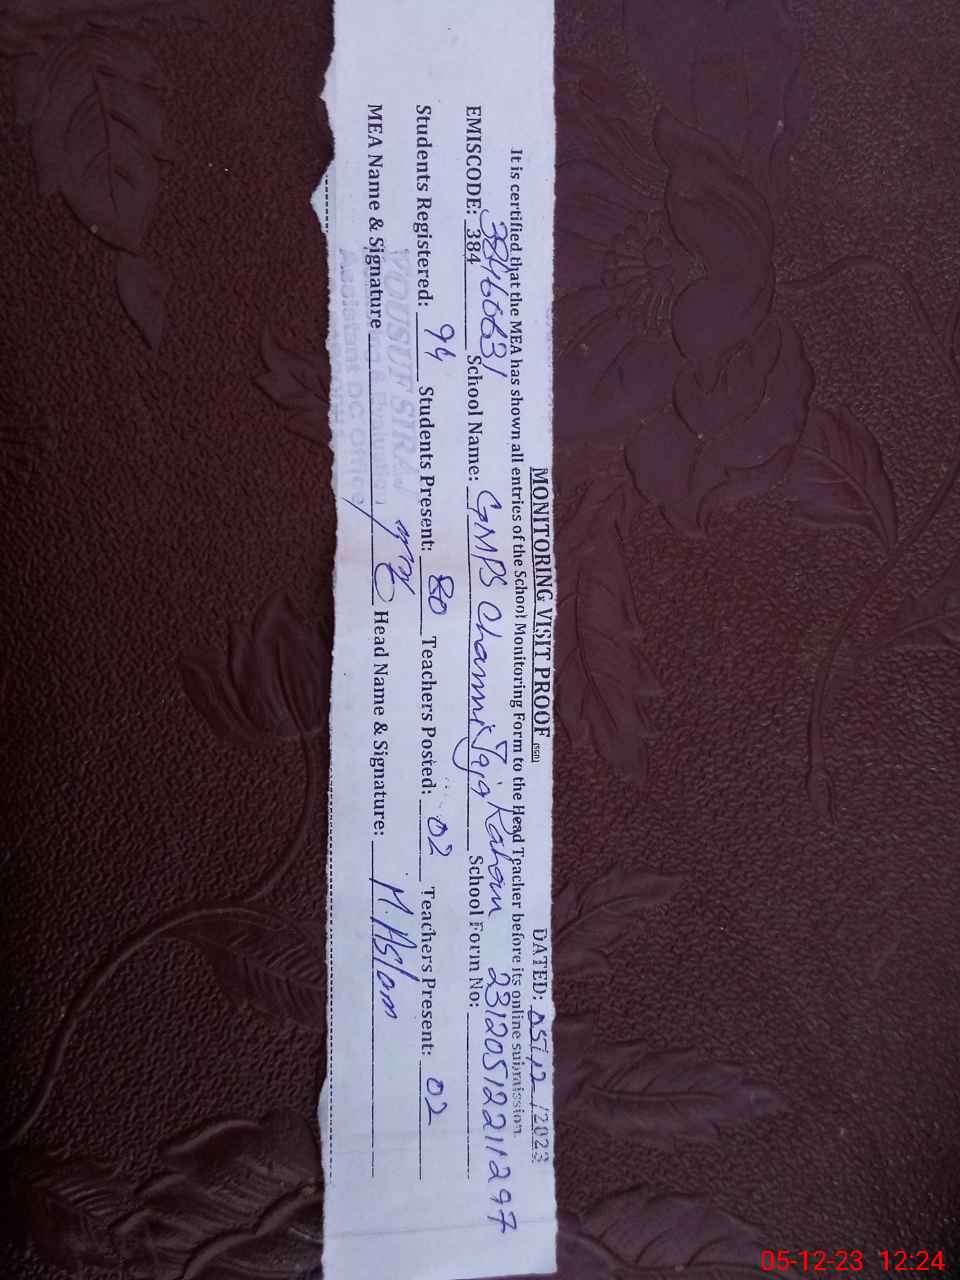 MONITORING VISIT PROOF (SSD) DATED: 05/12/2023
It is certified that the MEA has shown all entries of the School Monitoring Form to the Head Teacher before its online submission.
EMISCODE: 384 38460631 School Name: GMPS Channi Jaja Kahou School Form No: 231205122111297
Students Registered: 94 Students Present: 80 Teachers Posted: 02 Teachers Present: 02
MEA Name & Signature Head Name & Signature: M. Aslam
05-12-23 12:24